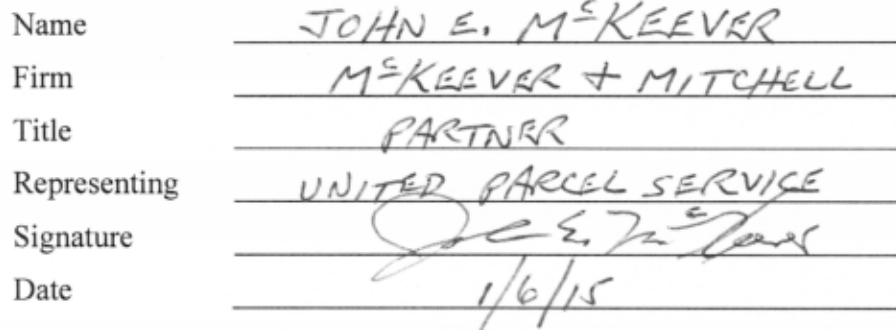 Name JOHN E. McKEEVER
Firm McKEEVER + MITCHELL
Title PARTNER
Representing UNITED PARCEL SERVICE
Signature John E. McKeever
Date 1/6/15